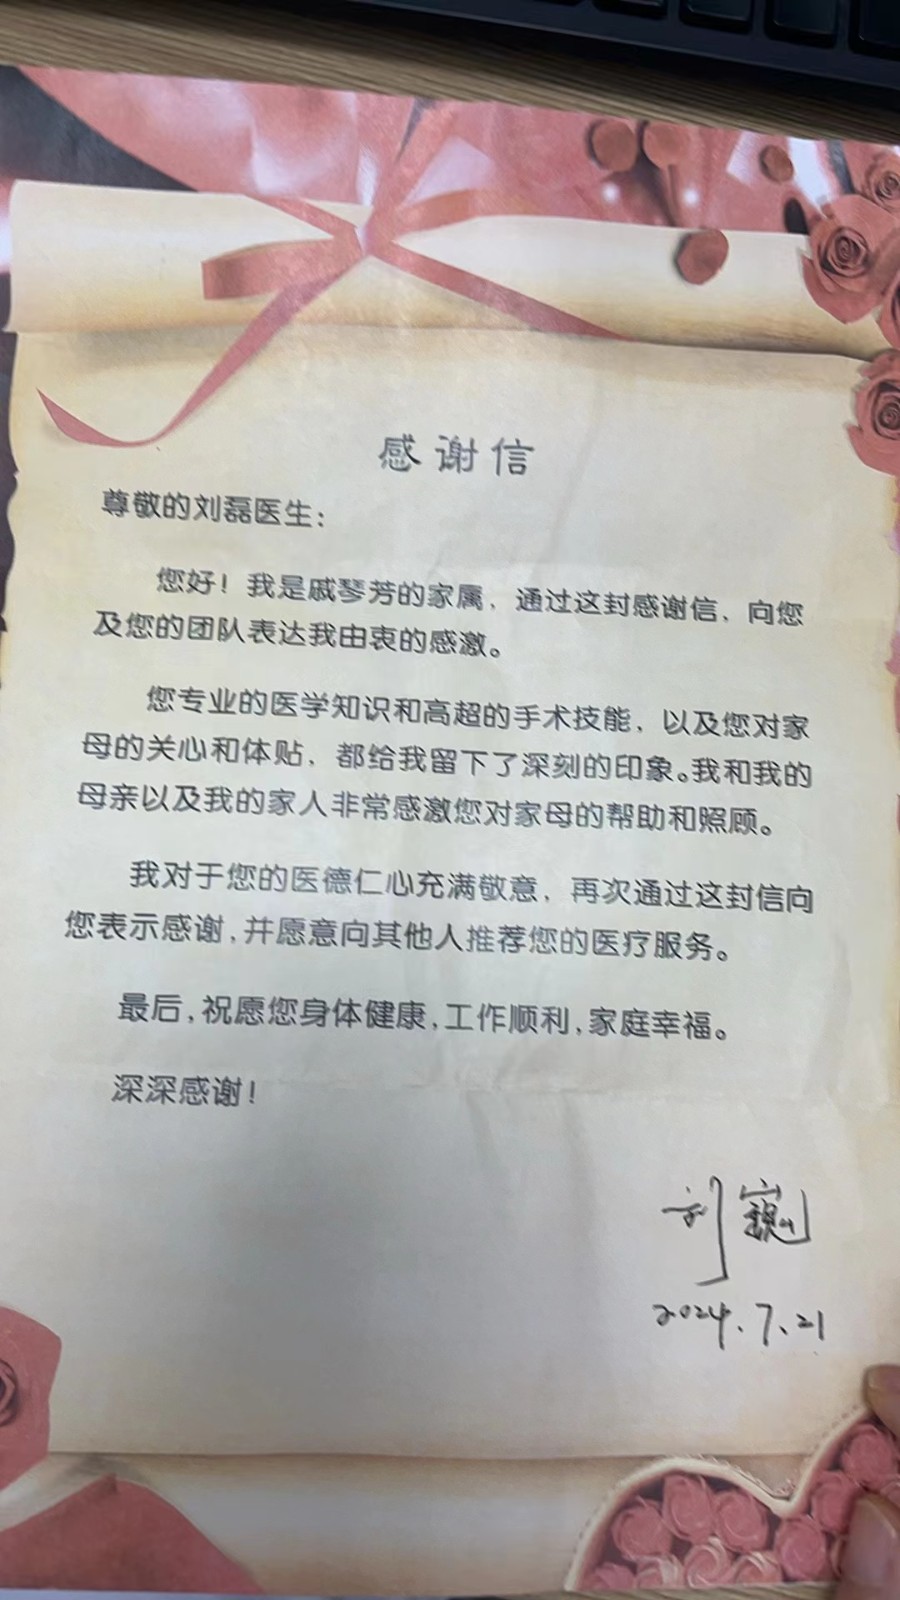 感谢信
尊敬的刘磊医生：
您好！我是戚琴芳的家属，通过这封感谢信，向您
及您的团队表达我由衷的感激。
您专业的医学知识和高超的手术技能，以及您对家
母的关心和体贴，都给我留下了深刻的印象。我和我的
母亲以及我的家人非常感激您对家母的帮助和照顾。
我对于您的医德仁心充满敬意，再次通过这封信向
您表示感谢，并愿意向其他人推荐您的医疗服务。
最后，祝愿您身体健康，工作顺利，家庭幸福。
深深感谢！
刘巍
2024.7.21